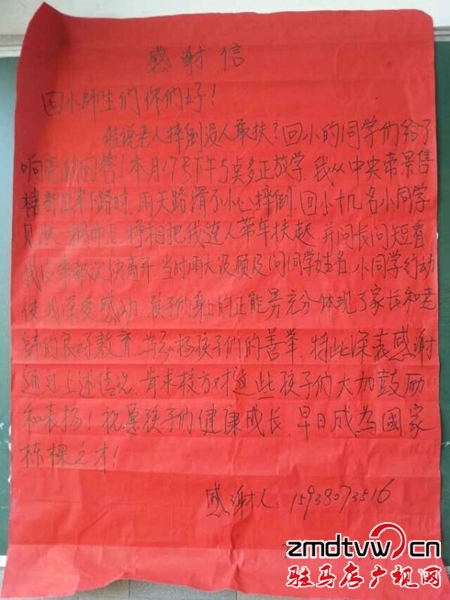 感谢信
回小师生们你们好！
谁说老人摔倒没人敢扶？回小的同学们给了
响亮的回答！本月17号下午5点多正放学，我从中央帝景售
楼部出来下路时，雨天路滑不小心摔倒，回小十几名小同学
见状 把我连人带车扶起，并问长问短看
我 离开，当时雨大没顾及问同学姓名，小同学行动
使我深受感动，孩子们身上的正能量充分体现了家长和老
师的良好教育，为弘扬孩子们的善举，特此深表感谢
通过上述情况，肯来校方对这些孩子们大加鼓励
和表扬！祝愿孩子们健康成长，早日成为国家
栋樑之才！
感谢人 15938073516
zmdtvw.cn
驻马店广视网